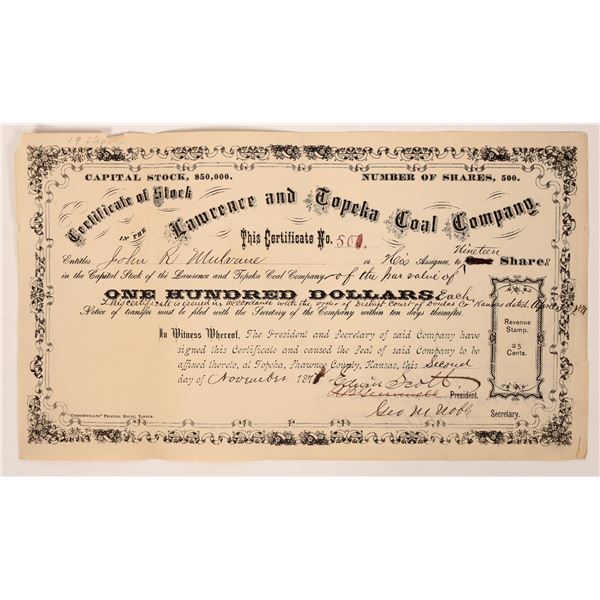 19 Shares
CAPITAL STOCK, $50,000. NUMBER OF SHARES, 500.
Certificate of Stock
IN THE
Lawrence and Topeka Coal Company.
This Certificate No. 501.
Entitles John R Mulvane or His Assignee, to Nineteen Shares
in the Capital Stock of the Lawrence and Topeka Coal Company of the par value of
ONE HUNDRED DOLLARS. Each
This certificate is issued in accordance with the order of District Court of Douglas Co Kansas dated
Notice of transfer must be filed with the Secretary of the Company within ten days thereafter.
In Witness Whereof, The President and Secretary of said Company have
signed this Certificate and caused the Seal of said Company to be
affixed thereto, at Topeka, Shawnee County, Kansas, this Second
day of November 187
President.
Geo M Noble
Secretary.
Revenue
Stamp.
25
Cents.
"COMMONWEALTH" PRINTING HOUSE, TOPEKA.